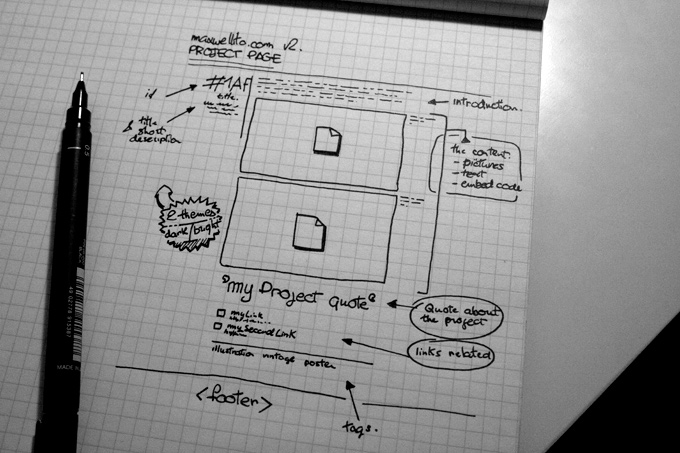 maxwellito.com v2.
PROJECT PAGE
id
#1AF
title.
introduction.
& title
short
description
the content:
- pictures
- text
- embed code
2 themes
dark/bright
"my Project quote"
Quote about
the project
my Link
my Second Link
links related
illustration vintage poster
<footer>
tags.
0.5
MADE